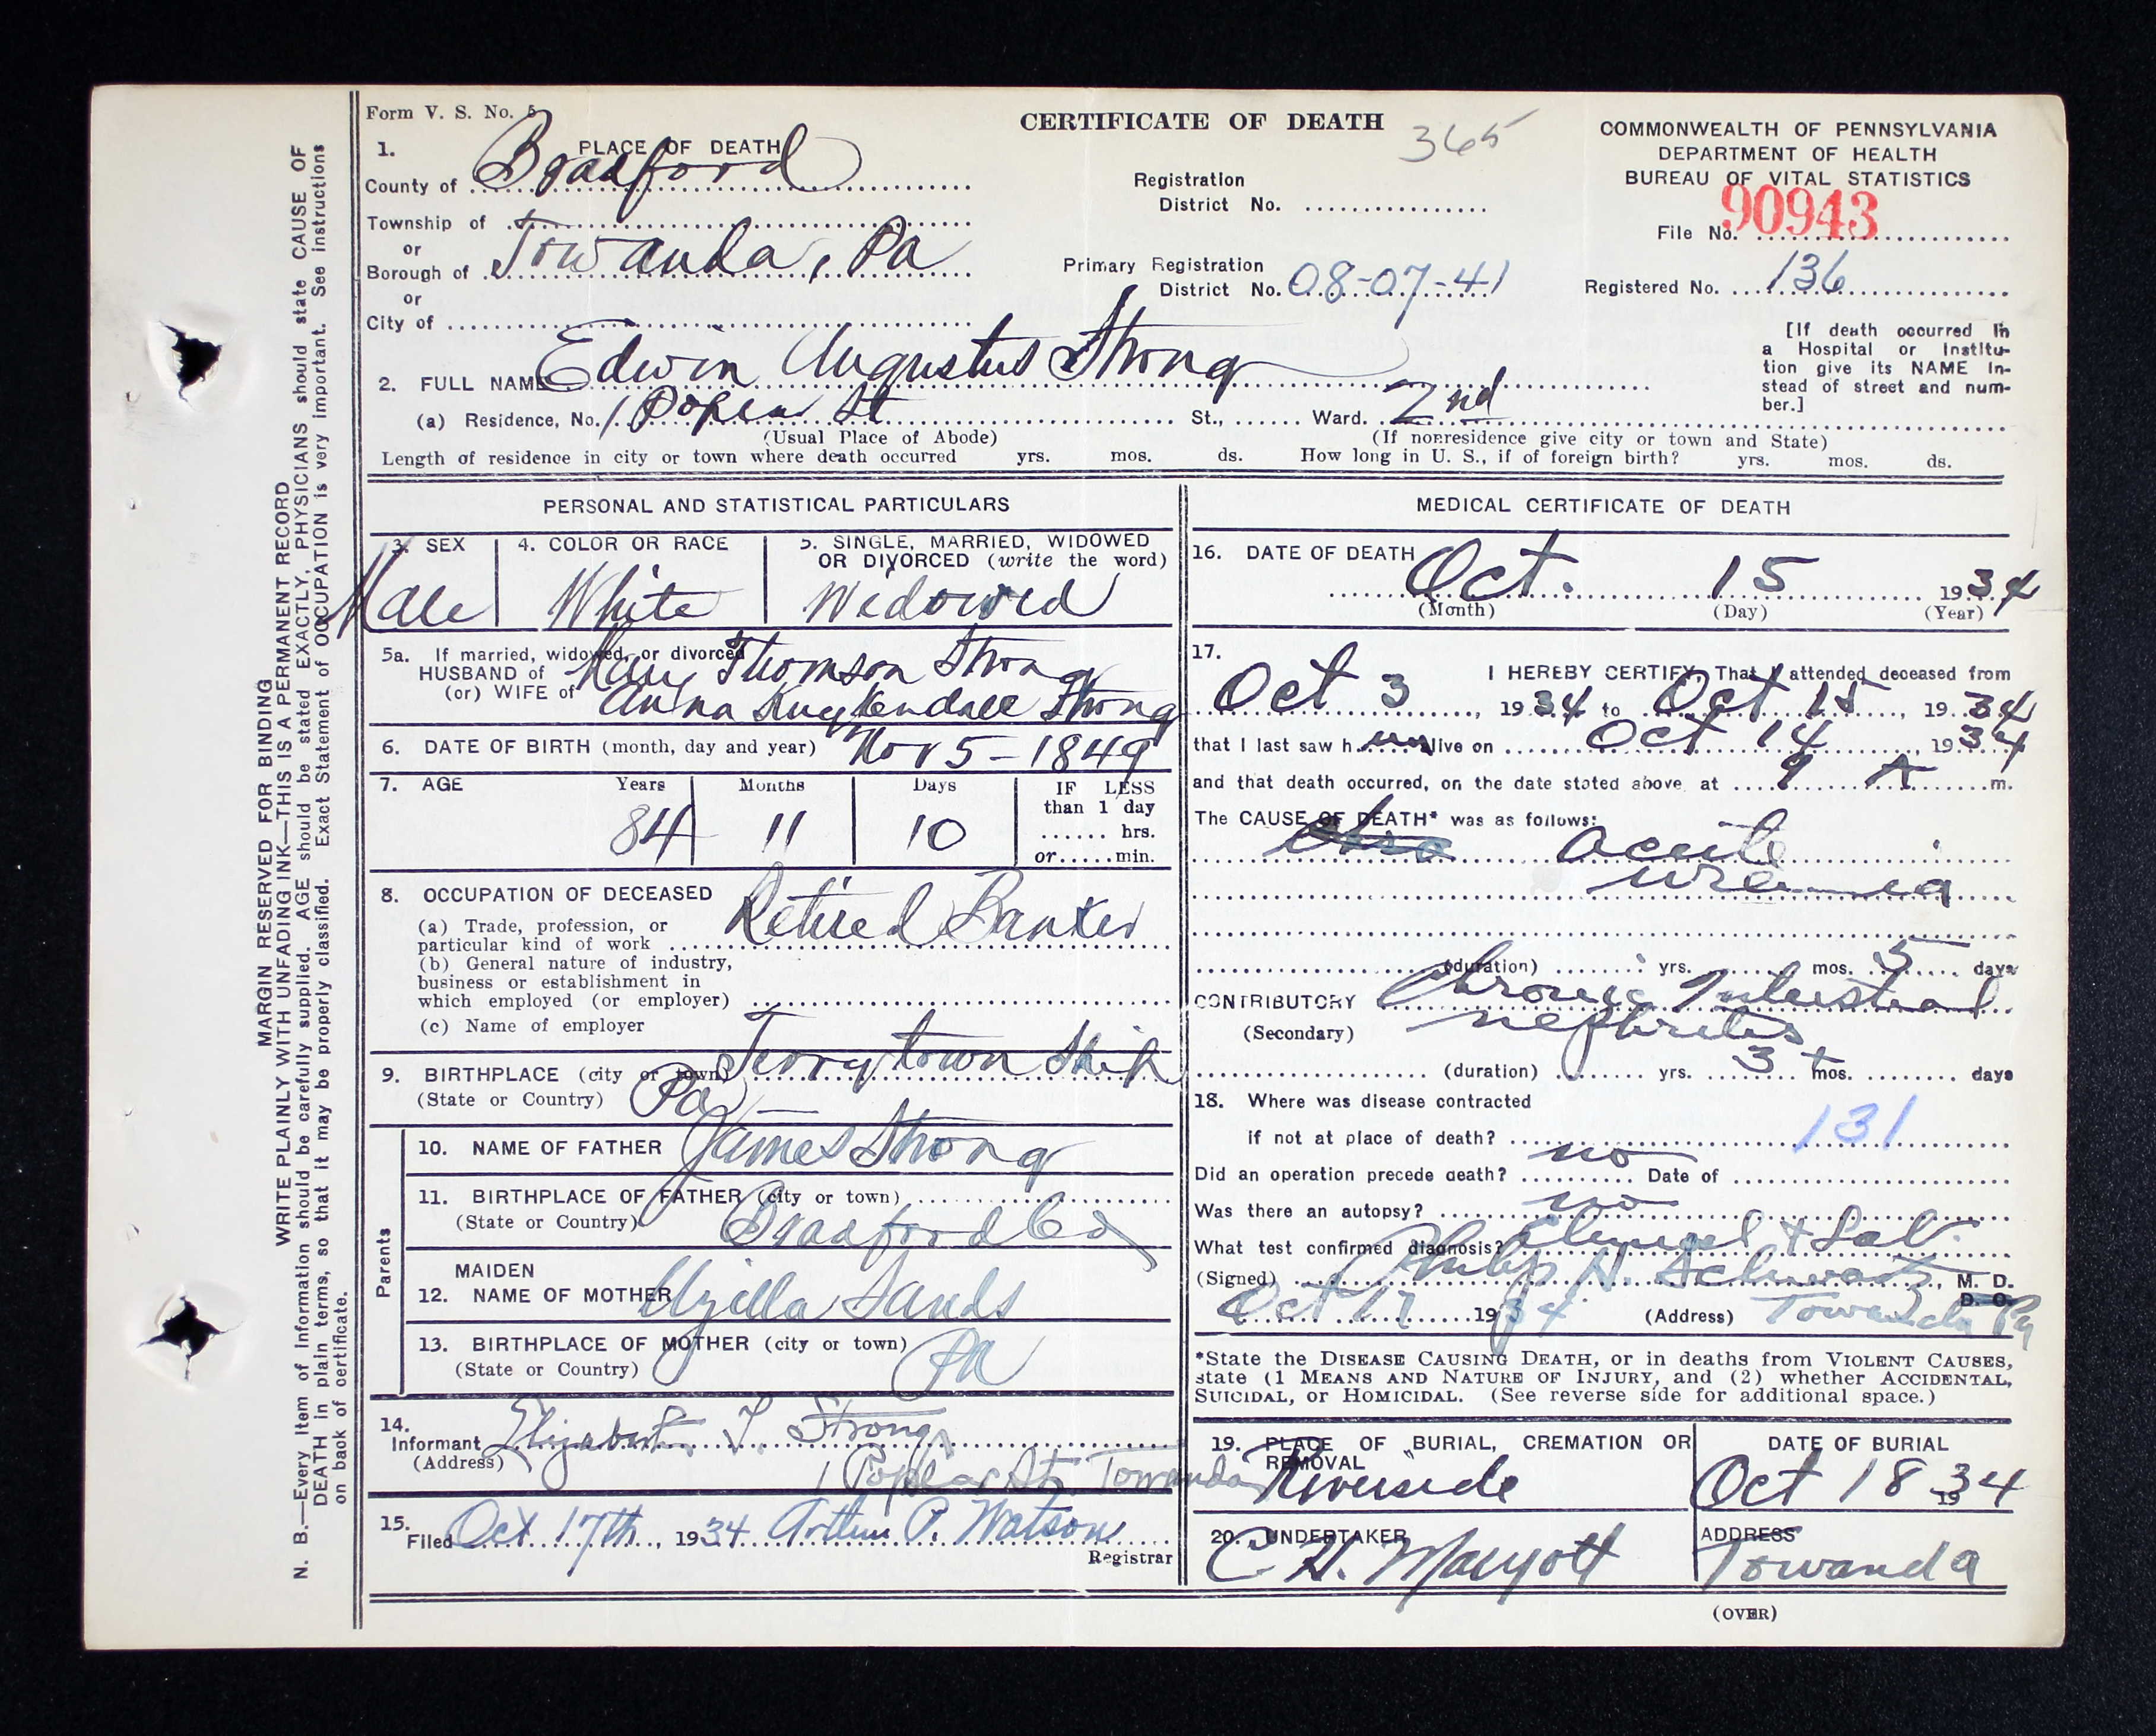 Form V. S. No. 5
CERTIFICATE OF DEATH
365
COMMONWEALTH OF PENNSYLVANIA
DEPARTMENT OF HEALTH
BUREAU OF VITAL STATISTICS
File No. 90943
Registered No. 136
1. PLACE OF DEATH
County of Bradford
Township of
or
Borough of Towanda, Pa
or
City of
Registration
District No.
Primary Registration
District No. 08-07-41
[If death occurred in
a Hospital or Institu-
tion give its NAME in-
stead of street and num-
ber.]
2. FULL NAME Edwin Augustus Strong
(a) Residence, No. 1 St St., Ward. 2nd
(Usual Place of Abode) (If nonresidence give city or town and State)
Length of residence in city or town where death occurred yrs. mos. ds. How long in U. S., if of foreign birth? yrs. mos. ds.
PERSONAL AND STATISTICAL PARTICULARS
3. SEX 4. COLOR OR RACE 5. SINGLE, MARRIED, WIDOWED
OR DIVORCED (write the word)
Male White Widowed
5a. If married, widowed, or divorced
HUSBAND of Mary Thomson Strong
(or) WIFE of Anna Kuykendall Strong
6. DATE OF BIRTH (month, day and year) Nov 5 - 1849
7. AGE Years Months Days IF LESS
than 1 day
84 11 10 hrs.
or min.
8. OCCUPATION OF DECEASED
(a) Trade, profession, or
particular kind of work Retired Banker
(b) General nature of industry,
business or establishment in
which employed (or employer)
(c) Name of employer
9. BIRTHPLACE (city or town) Terrytown
(State or Country) Pa
Parents
10. NAME OF FATHER James Strong
11. BIRTHPLACE OF FATHER (city or town)
(State or Country) Bradford Co
MAIDEN
12. NAME OF MOTHER Uzilla Sands
13. BIRTHPLACE OF MOTHER (city or town)
(State or Country) Pa
14.
Informant Elizabeth T. Strong
(Address) 1 Poplar St. Towanda
15.
Filed Oct 17th, 1934 Arthur P. Watson
Registrar
MEDICAL CERTIFICATE OF DEATH
16. DATE OF DEATH
Oct. 15 1934
(Month) (Day) (Year)
17.
I HEREBY CERTIFY, That I attended deceased from
Oct 3, 1934 to Oct 15, 1934
that I last saw him alive on Oct 14, 1934
and that death occurred, on the date stated above at 9 A m.
The CAUSE OF DEATH* was as follows:
acute
uremia
(duration) yrs. mos. 5 days
CONTRIBUTORY Chronic Interstitial
(Secondary) nephritis
(duration) yrs. 3 + mos. days
18. Where was disease contracted
if not at place of death? 131
Did an operation precede death? no Date of
Was there an autopsy? no
What test confirmed diagnosis? Clinical + Lab.
(Signed) Philip H. Schwartz, M. D.
D. O.
Oct 17 1934 (Address) Towanda Pa
*State the DISEASE CAUSING DEATH, or in deaths from VIOLENT CAUSES,
state (1 MEANS AND NATURE OF INJURY, and (2) whether ACCIDENTAL,
SUICIDAL, OR HOMICIDAL. (See reverse side for additional space.)
19. PLACE OF BURIAL, CREMATION OR
REMOVAL
Riverside
DATE OF BURIAL
Oct 18 1934
20. UNDERTAKER
C. H. Maryott
ADDRESS
Towanda
(OVER)
MARGIN RESERVED FOR BINDING
WRITE PLAINLY WITH UNFADING INK—THIS IS A PERMANENT RECORD
N. B.—Every item of information should be carefully supplied. AGE should be stated EXACTLY, PHYSICIANS should state CAUSE OF
DEATH in plain terms, so that it may be properly classified. Exact Statement of OCCUPATION is very important. See instructions
on back of certificate.